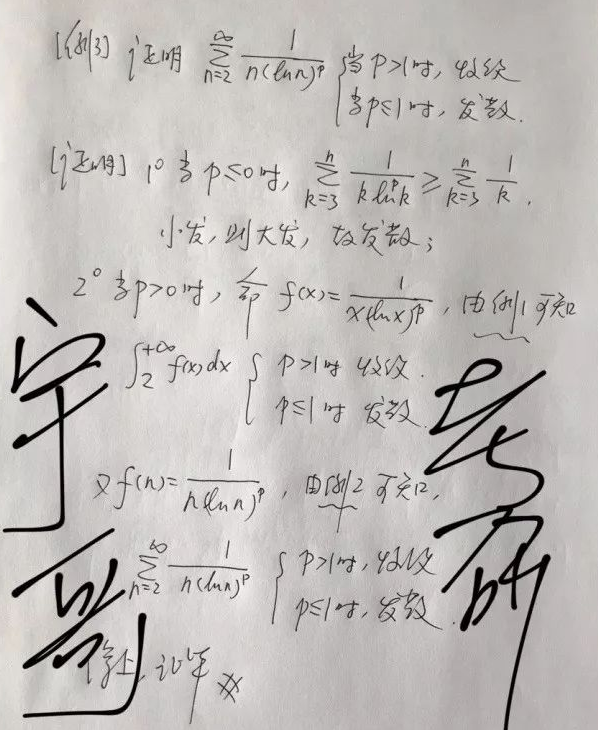 [例3] 证明 ∑_{n=2}^{∞} 1/(n(ln n)^p) { 当p>1时, 收敛
当p≤1时, 发散.
[证明] 1° 当 p≤0时, ∑_{k=3}^{n} 1/(k ln^p k) ≥ ∑_{k=3}^{n} 1/k,
小发, 则大发, 故发散;
2° 当p>0时, 令 f(x)= 1/(x(ln x)^p), 由例1可知
∫_2^{+∞} f(x)dx { p>1时 收敛.
p≤1时 发散.
又f(n)= 1/(n(ln n)^p), 由例2可知,
∑_{n=2}^{∞} 1/(n(ln n)^p) { p>1时, 收敛
p≤1时, 发散.
综上, 证毕
宇哥
考研